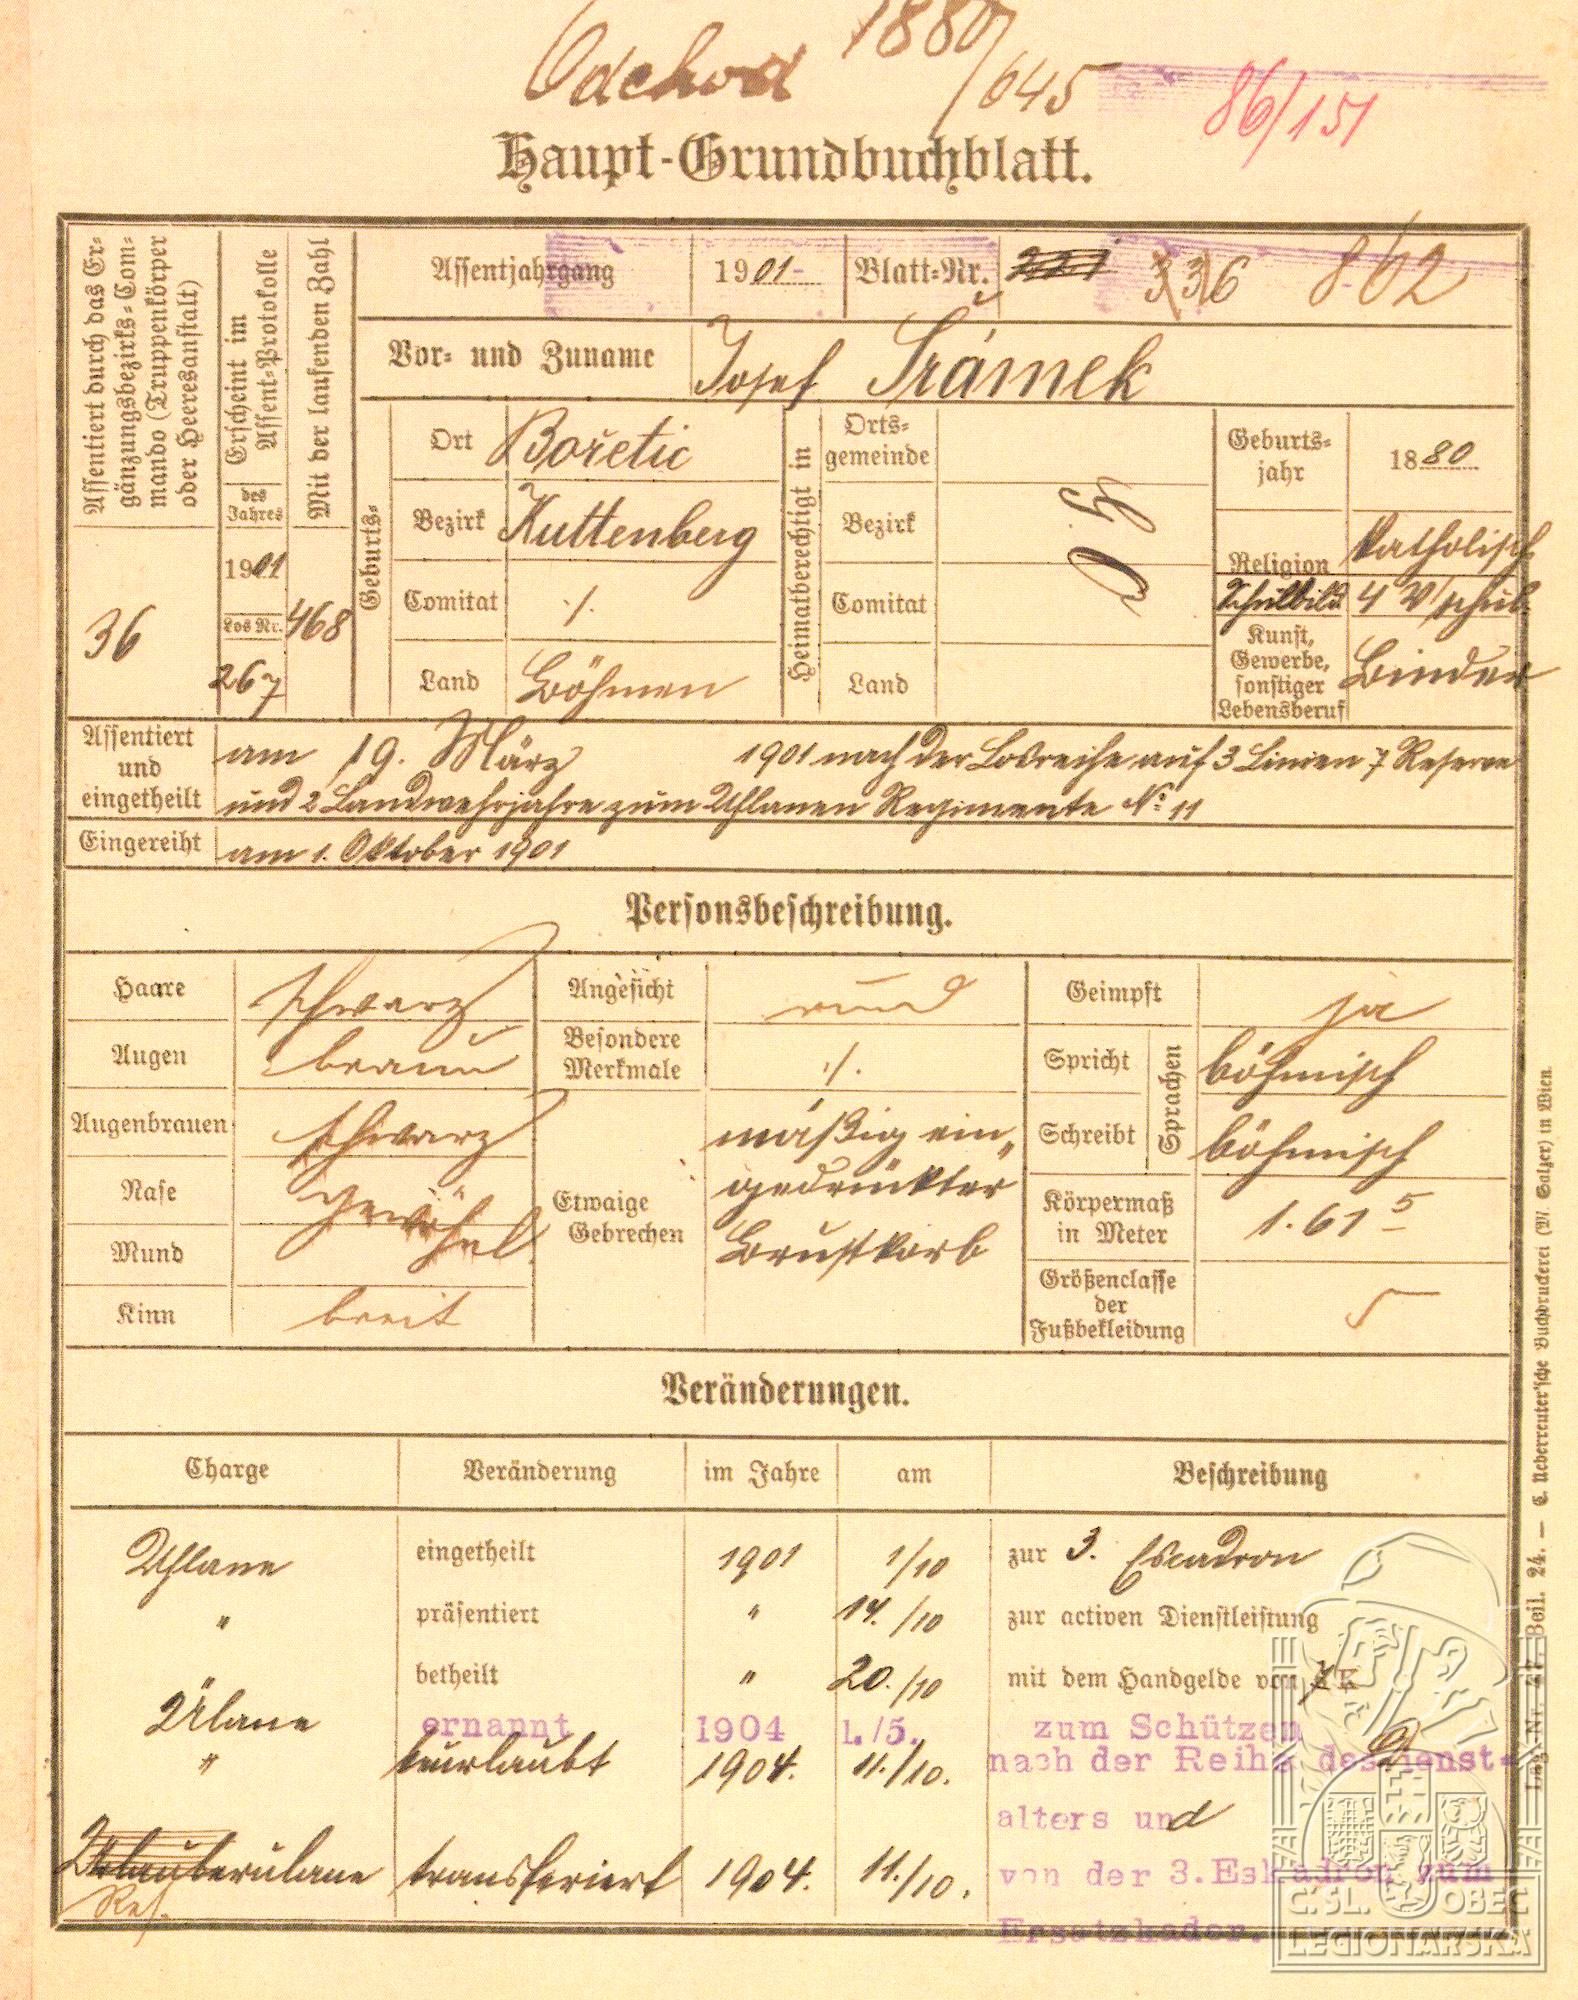 Odchod 1880/645
86/151
Haupt-Grundbuchblatt.
Assentiert durch das Ergänzungsbezirks-Commando (Truppenkörper oder Heeresanstalt)
36
Erscheint im Assent-Protokolle
des Jahres
1901
Los Nr.
267
Mit der laufenden Zahl
468
Assentjahrgang 1901 Blatt-Nr. 221 336 862
Vor- und Zuname Josef Šrámek
Geburts-
Ort Bořetic
Bezirk Kuttenberg
Comitat ./.
Land Böhmen
Heimatberechtigt in
Ortsgemeinde
Bezirk
Comitat
Land
Geburtsjahr 1880
Religion katholisch
Schulbild 4 V schul.
Kunst, Gewerbe, sonstiger Lebensberuf Binder
Assentiert und eingetheilt
am 19. März 1901 nach der Losreihe auf 3 Linien 7 Reserve
und 2 Landwehrjahre zum Uhlanen Regimente No 11
Eingereiht am 1. Oktober 1901
Personsbeschreibung.
Haare schwarz
Augen braun
Augenbrauen schwarz
Nase gewöhnl.
Mund
Kinn breit
Angesicht rund
Besondere Merkmale ./.
Etwaige Gebrechen
mäßig ein„
gedrückter
Brustkorb
Geimpft ja
Sprachen
Spricht böhmisch
Schreibt böhmisch
Körpermaß in Meter 1.61 5
Größenclasse der Fußbekleidung 5
Veränderungen.
Charge Veränderung im Jahre am Beschreibung
Uhlane eingetheilt 1901 1/10 zur 3. Escadron
" präsentiert " 14./10 zur activen Dienstleistung
betheilt " 20./10 mit dem Handgelde von K
Ulane ernannt 1904 1./5. zum Schützen
" beurlaubt 1904. 11./10. nach der Reihe des Dienst-
alters und
Urlauberulane transferiert 1904. 11./10. von der 3.Eskadron zum
Res.
Ersatzkader.
Lag.-Nr. Beil. 24. — C. Ueberreuter'sche Buchdruckerei (M. Salzer) in Wien.
Č.SL. OBEC
LEGIONÁŘSKÁ